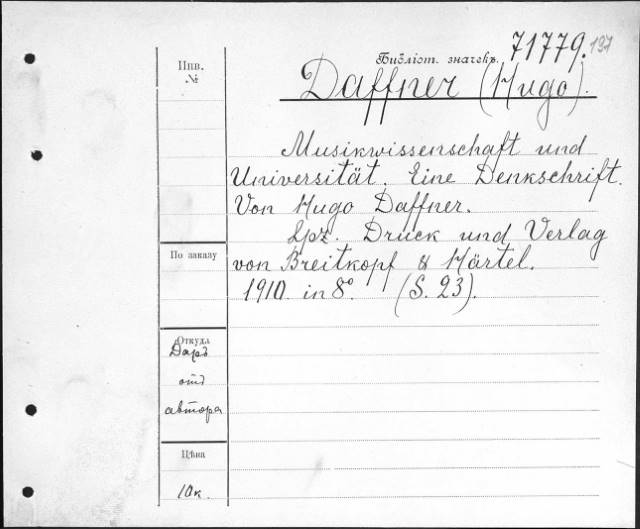 Инв.
№
Библіот. значекъ. 71779. 197
Daffner (Hugo).
Musikwissenschaft und
Universität. Eine Denkschrift.
Von Hugo Daffner.
Lpz. Druck und Verlag
von Breitkopf & Härtel.
1910. in 8° (S. 23).
По заказу
Откуда
Даръ
отъ
автора
Цѣна
10к.